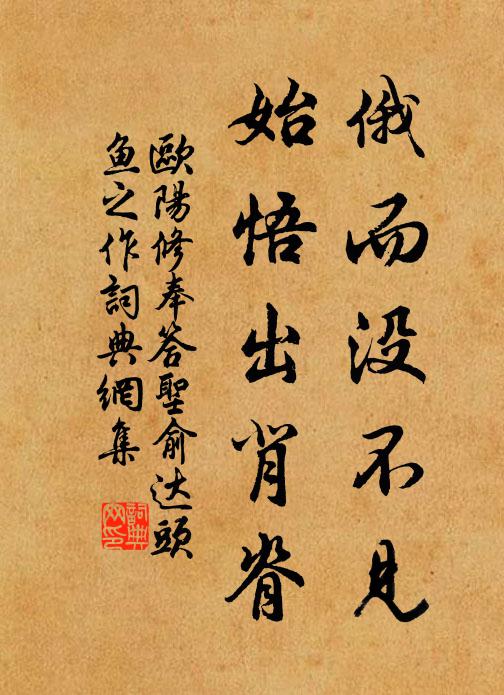 俄而没不见
始悟出背脊
歐陽修奉答聖俞达頭
魚之作詞典網集
詞典网印